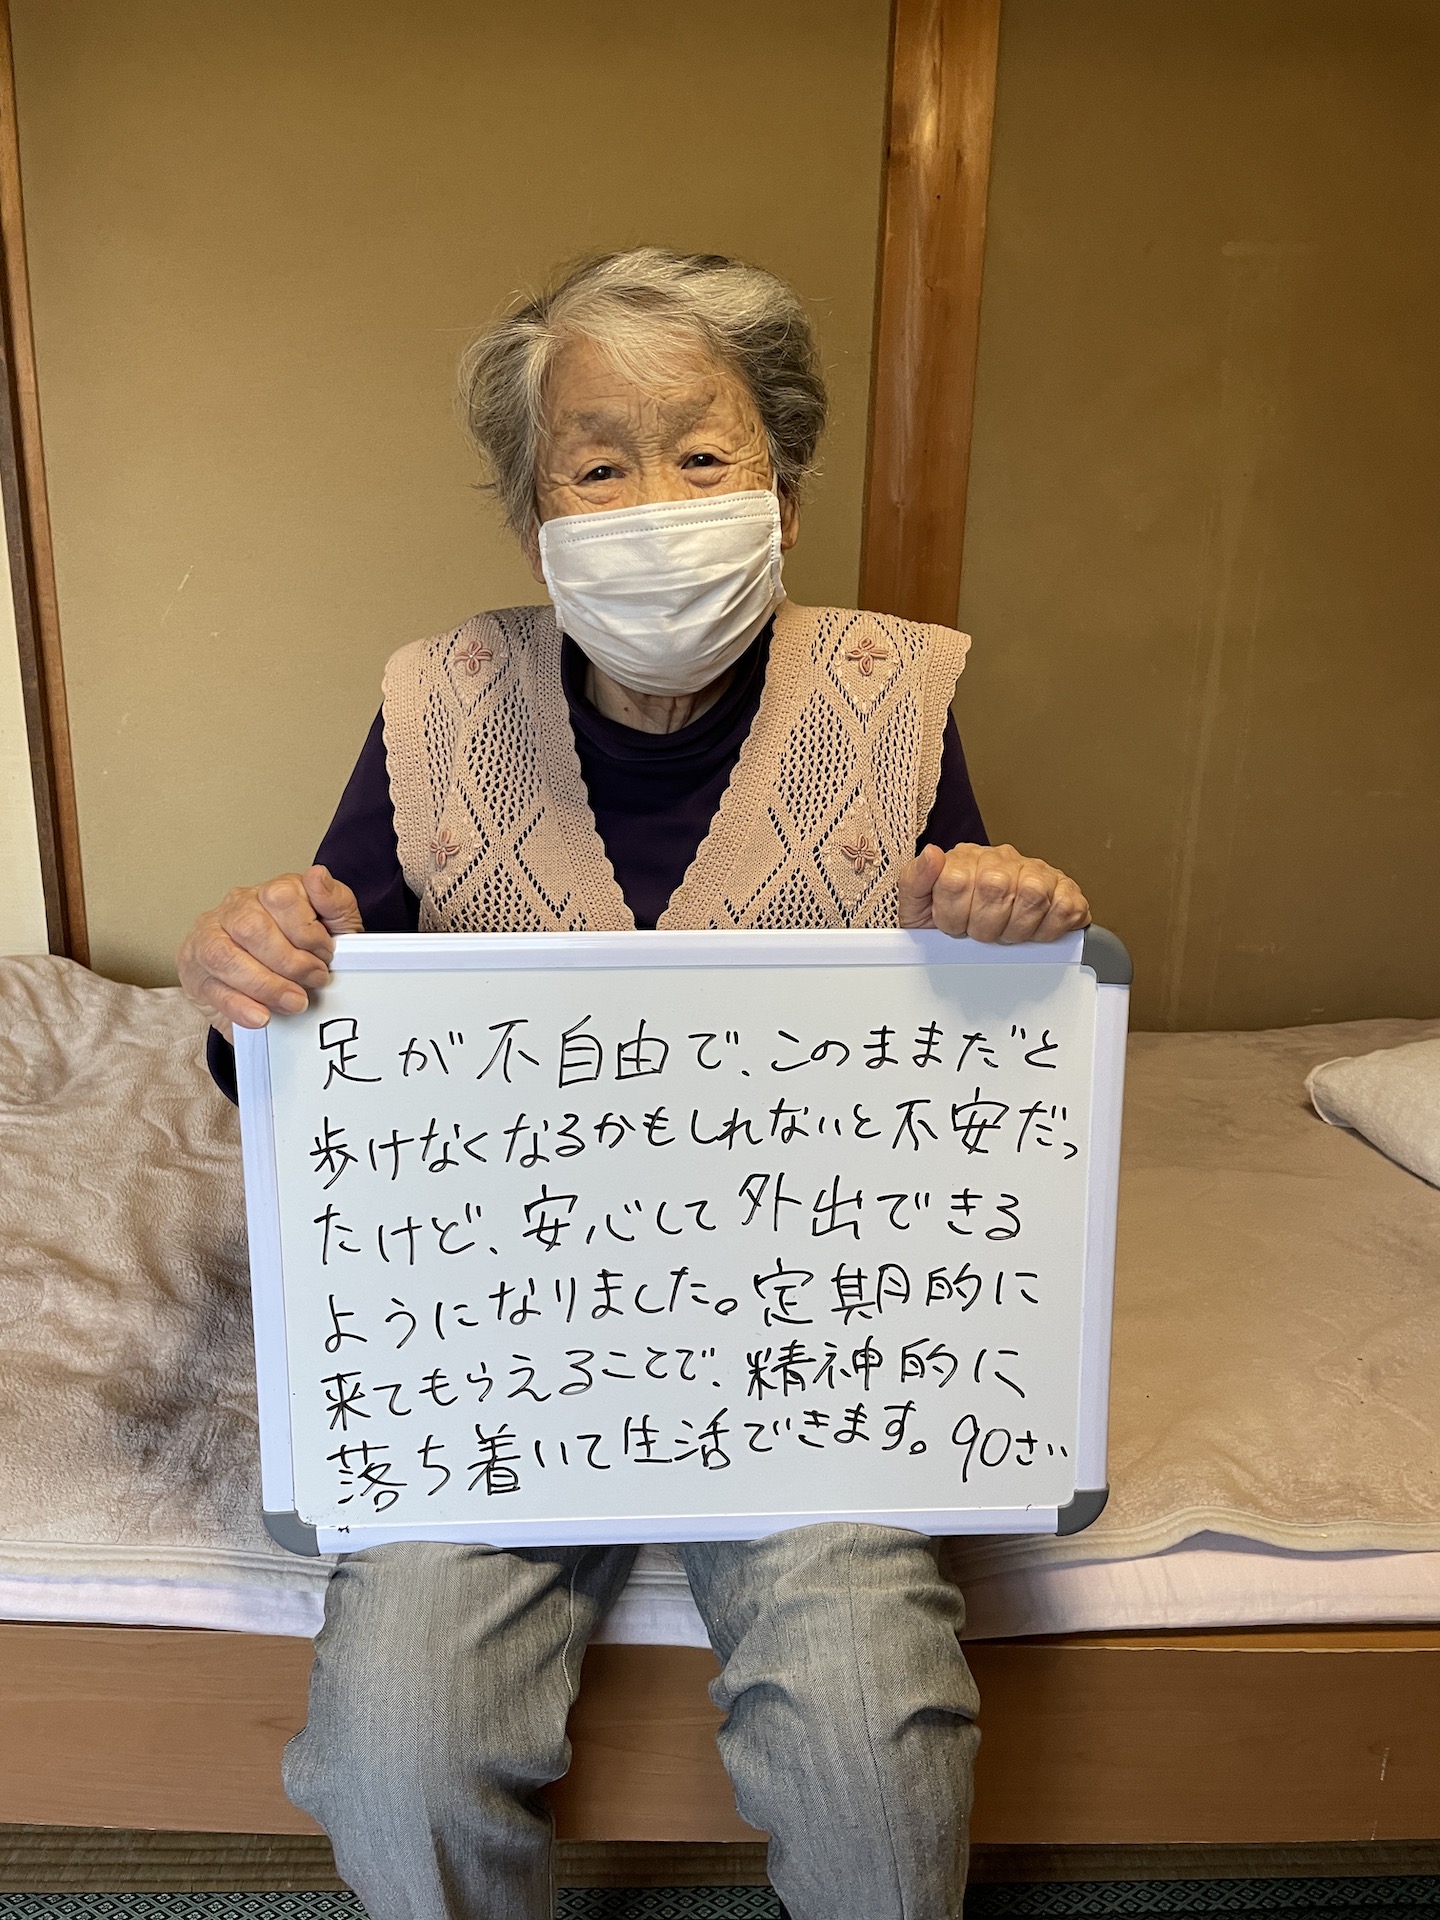 足が不自由で、このままだと
歩けなくなるかもしれないと不安だっ
たけど、安心して外出できる
ようになりました。定期的に
来てもらえることで、精神的に
落ち着いて生活できます。90さい